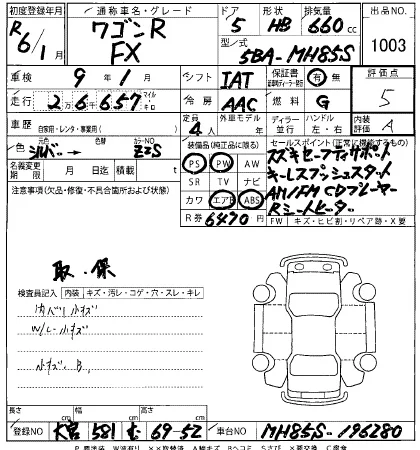 初度登録年月 通称車名・グレード ドア 形状 排気量 出品NO
R6/1 ワゴンR FX 5 HB 660cc 1003
型式 5BA-MH85S
車検 9年1月 シフト IAT 保証書 有 無 評価点
走行 26,657 マイル キロ 冷房 AAC 燃料 G 5
車歴 自家用・レンタ・事業用( ) 定員 4人 外車モデル 年 ディーラー 並行 ハンドル 左・右 内装 A
色 元色 シルバー 色替 カラーNO Z2S 装備品(純正品に限る) セールスポイント(正常に機能するもの)
名義変更期限 月 日迄 積載 t PS PW AW スズキセーフティサポート
注意事項(欠品・修復・不具合箇所および状態) SR TV ナビ キーレスプッシュスタート
カワ エアB ABS AM/FM CDプレーヤー
R券 6470円 Rシートヒーター
FW キズ・ヒビ割・リペア跡・X要
取・保
検査員記入 内装 キズ・汚レ・コゲ・穴・スレ・キレ
内ハリ小キズ
W/L・小キズ
小キズ・B
長さ cm 幅 cm 高さ cm
登録NO 大宮 581 む 69-52 車台NO MH85S-196280